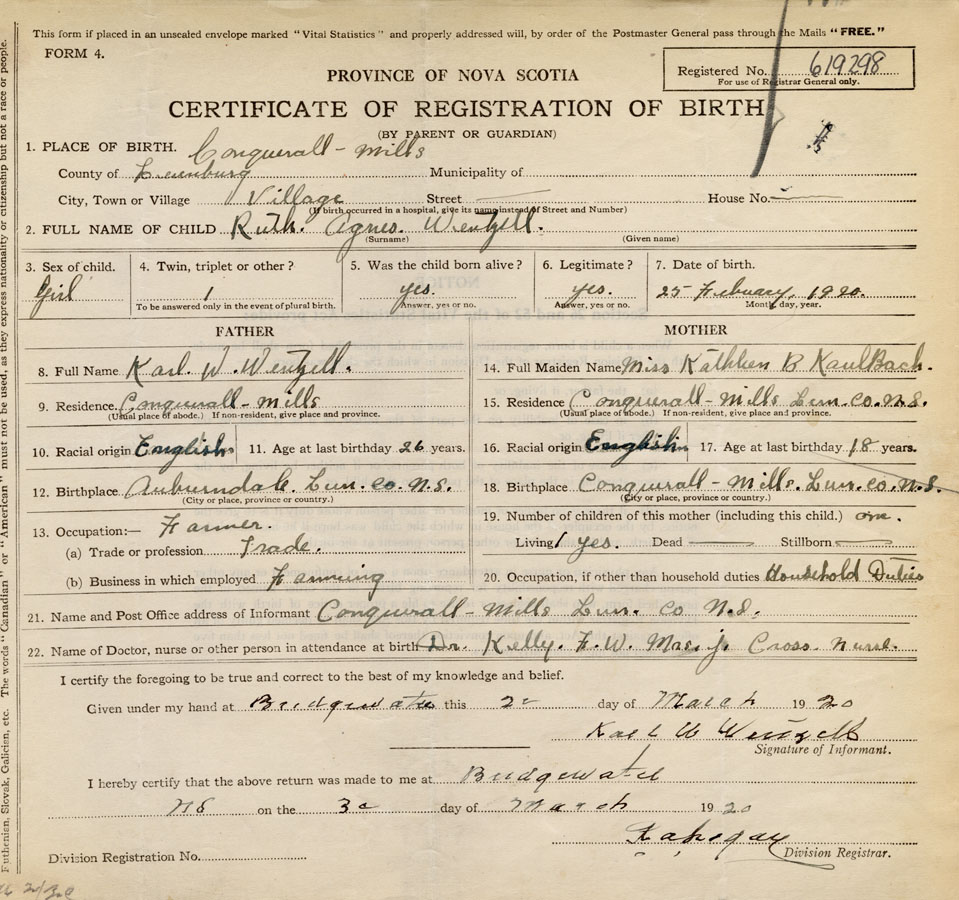 This form if placed in an unsealed envelope marked "Vital Statistics" and properly addressed will, by order of the Postmaster General pass through the Mails "FREE."
FORM 4.
Registered No. 619298
For use of Registrar General only.
PROVINCE OF NOVA SCOTIA
CERTIFICATE OF REGISTRATION OF BIRTH
(BY PARENT OR GUARDIAN)
1. PLACE OF BIRTH. Conquerall-Mills
County of Lunenburg Municipality of
City, Town or Village Village Street House No.
(If birth occurred in a hospital, give its name instead of Street and Number)
2. FULL NAME OF CHILD Ruth. Agnes. Wentzell.
(Surname) (Given name)
3. Sex of child. 4. Twin, triplet or other? 5. Was the child born alive? 6. Legitimate? 7. Date of birth.
Girl 1 yes. yes. 25 February, 1920.
To be answered only in the event of plural birth. Answer, yes or no. Answer, yes or no. Month, day, year.
FATHER
8. Full Name Karl. W. Wentzell.
9. Residence. Conquerall-Mills
(Usual place of abode.) If non-resident, give place and province.
10. Racial origin English 11. Age at last birthday 26 years.
12. Birthplace Auburndale. Lun. co. N.S.
(City or place, province or country.)
13. Occupation:— Farmer.
(a) Trade or profession Trade.
(b) Business in which employed Farming
MOTHER
14. Full Maiden Name Miss Kathleen B KaulBach.
15. Residence Conquerall-Mills Lun. co. N.S.
(Usual place of abode.) If non-resident, give place and province.
16. Racial origin English 17. Age at last birthday 18 years.
18. Birthplace Conquerall-Mills. Lun. co. N.S.
(City or place, province or country.)
19. Number of children of this mother (including this child.) one.
Living 1 yes. Dead Stillborn
20. Occupation, if other than household duties Household Duties
21. Name and Post Office address of Informant Conquerall-Mills Lun. co N.S.
22. Name of Doctor, nurse or other person in attendance at birth Dr. Kelly. F. W. Cross. Nurse.
I certify the foregoing to be true and correct to the best of my knowledge and belief.
Given under my hand at Bridgewater this day of March 1920
Karl W Wentzell
Signature of Informant.
I hereby certify that the above return was made to me at Bridgewater
NS on the day of March 1920
Division Registrar.
Division Registration No.
Ruthenian, Slovak, Galician, etc. The words "Canadian" or "American" must not be used, as they express nationality or citizenship but not a race or people.